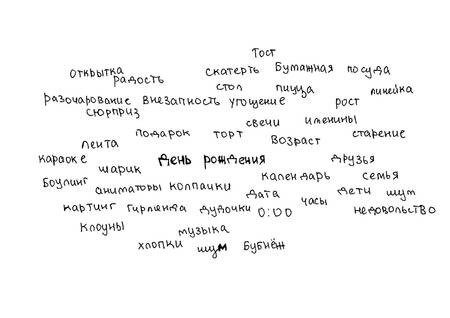 Тост
открытка скатерть бумажная посуда
радость стол пицца линейка
разочарование внезапность угощение рост
сюрприз свечи именины
лента подарок торт возраст старение
караоке шарик день рождения друзья
боулинг аниматоры колпачки календарь семья
дата дети шум
картинг гирлянда дудочки 0:00 часы недовольство
клоуны музыка
хлопки шум бубнёж